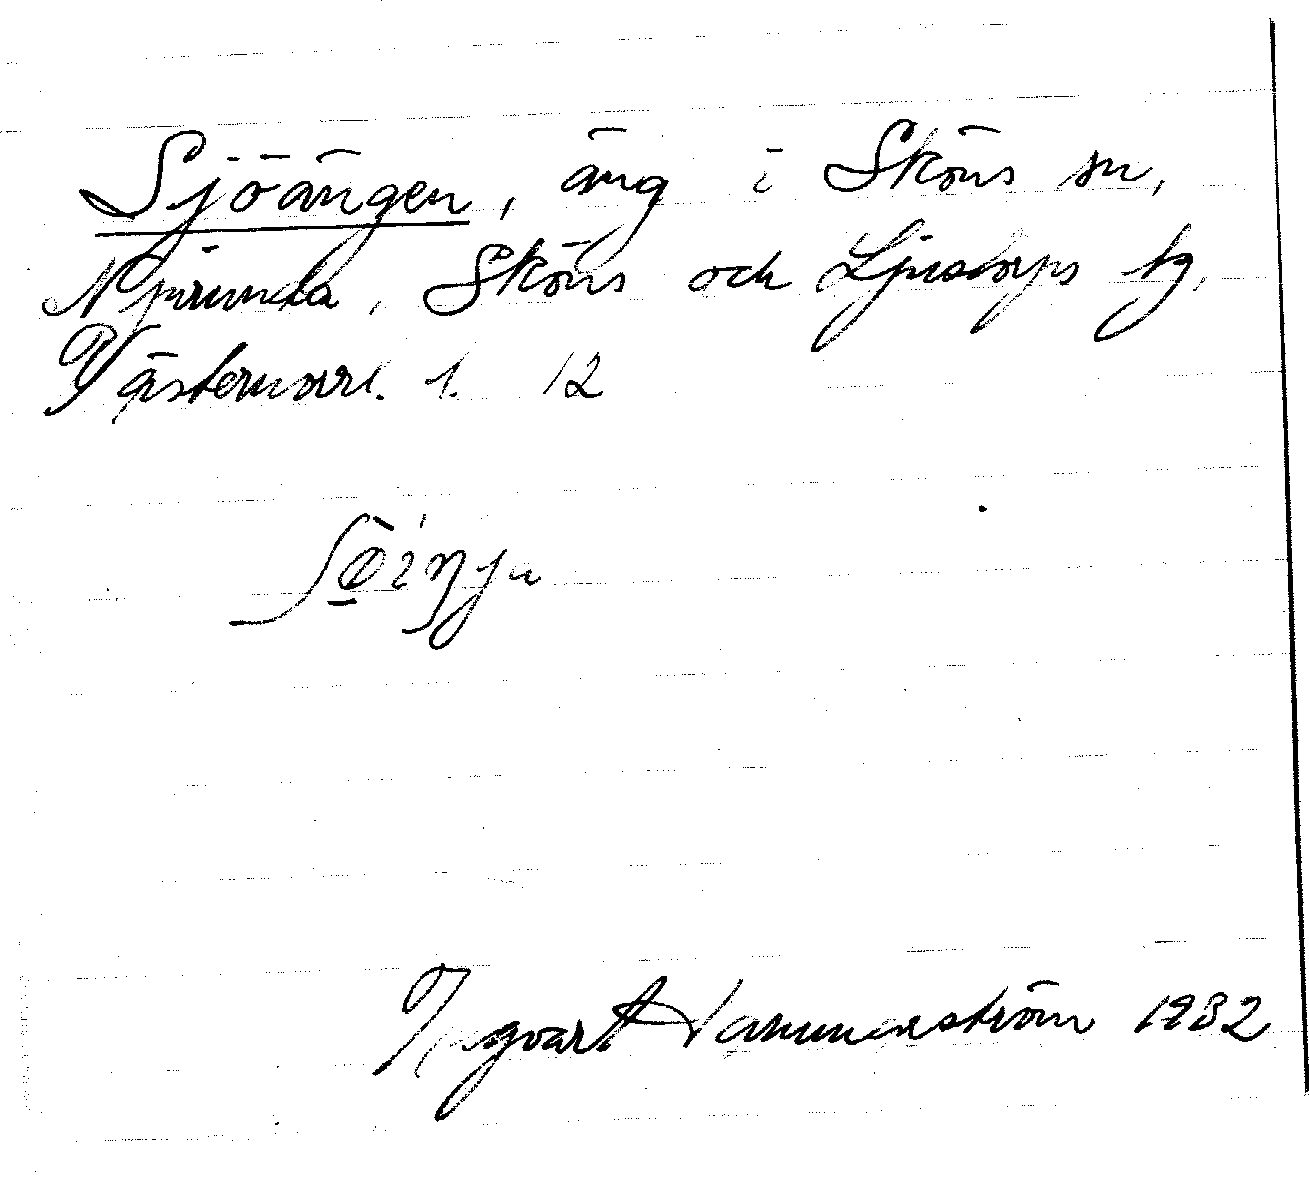 Sjöängen, äng i Sköns sn,
Njurunda, Sköns och Ljustorps tg,
Västernorrl. l. 12
Ingvart Hammarström 1932